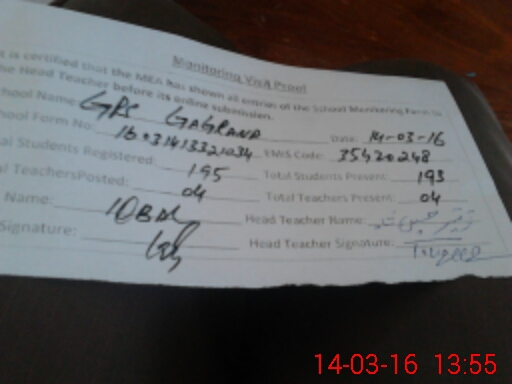 Monitoring Visit Proof
t is certified that the MEA has shown all entries of the School Monitoring Form to
he Head Teacher before its online submission.
hool Name GPS GAGRANA Date: 14-03-16
hool Form No: EMIS Code: 35420248
al Students Registered: 195 Total Students Present: 193
al Teachers Posted: 04 Total Teachers Present: 04
Name: IQBAL Head Teacher Name:
Signature: Head Teacher Signature:
14-03-16 13:55